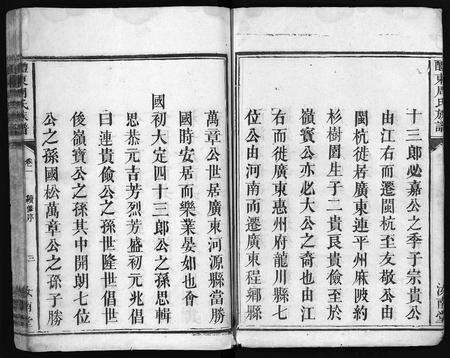 醴東周氏族譜
汝南堂
十三郎必嘉公之季子宗貴公
由江右而遷閩杭至友敬公由
閩杭徙居廣東連平州麻陂約
杉樹園生子二貴良貴儉至於
嶺寳公亦必大公之裔也由江
右而徙居廣東惠州府龍川縣七
位公由河南而遷廣東程鄉縣
萬章公世居廣東河源縣當勝
國時安居而樂業晏如也會
國初大定四十三郎公之孫思輯
思恭元吉芳烈芳盛初元兆倡
曰連貴儉公之孫世隆世倡世
後嶺寳公之孫其中開朗七位
公之孫國松萬章公之孫子勝
醴東周氏族譜
卷一
三